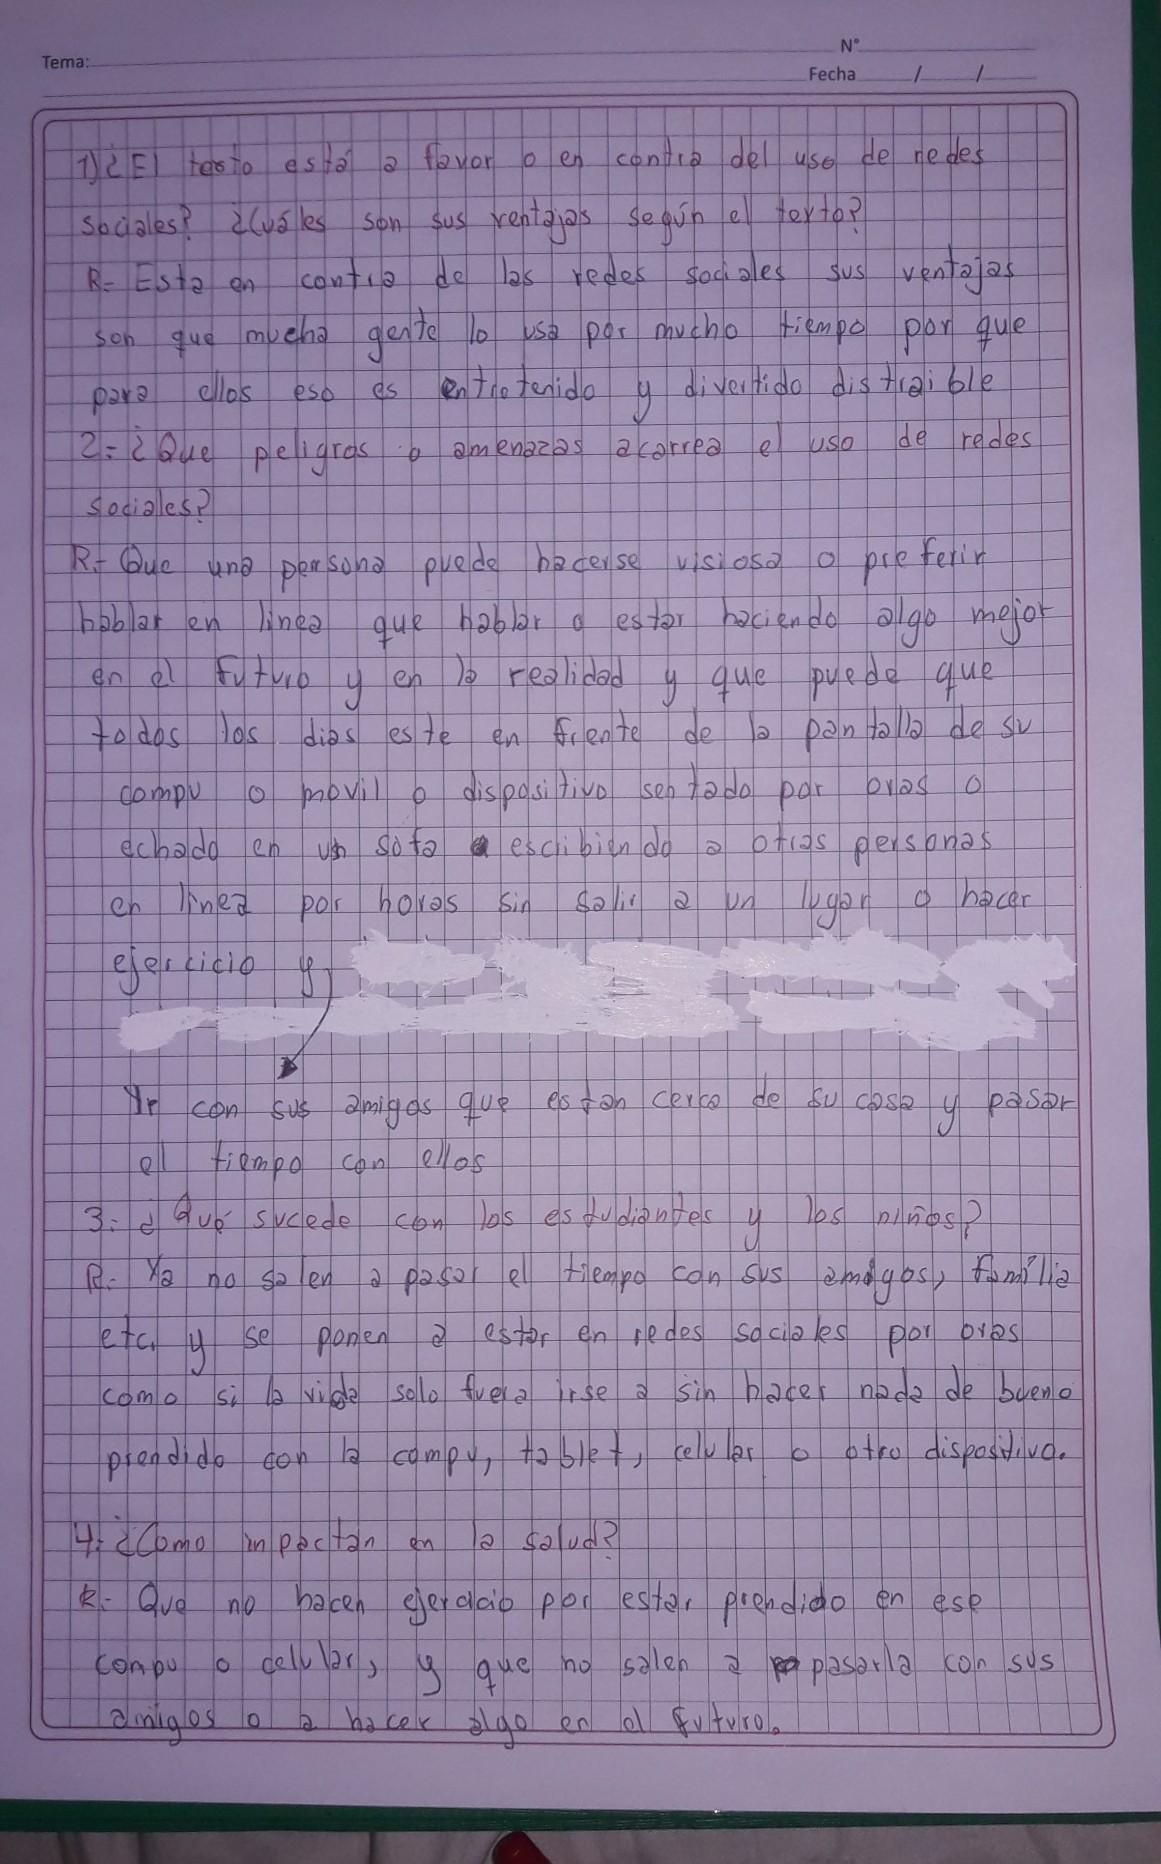 Tema:
N°
Fecha / /
1) ¿El texto está a favor o en contra del uso de redes
sociales? ¿Cuáles son sus ventajas según el texto?
R- Esta en contra de las redes sociales sus ventajas
son que mucha gente lo usa por mucho tiempo por que
para ellos eso es entretenido y divertido distraible
2- ¿Que peligros o amenazas acarrea el uso de redes
sociales?
R- Que una persona puede hacerse visiosa o preferir
hablar en linea que hablar o estar haciendo algo mejor
en el futuro y en la realidad y que puede que
todos los dias este en frente de la pantalla de su
compu o movil o dispositivo sentado por oras o
echado en un sofa escribiendo a otras personas
en linea por horas sin salir a un lugar o hacer
ejercicio y
Yr con sus amigos que estan cerca de su casa y pasar
el tiempo con ellos
3- ¿Qué sucede con los estudiantes y los niños?
R- Ya no salen a pasar el tiempo con sus amigos, familia
etc. y se ponen a estar en redes sociales por oras
como si la vida solo fuera irse a sin hacer nada de bueno
prendido con la compu, tablet, celular o otro dispositivo.
4- ¿Como impactan en la salud?
R- Que no hacen ejercicio por estar prendido en ese
compu o celular, y que no salen a pasarla con sus
amigos o a hacer algo en el futuro.